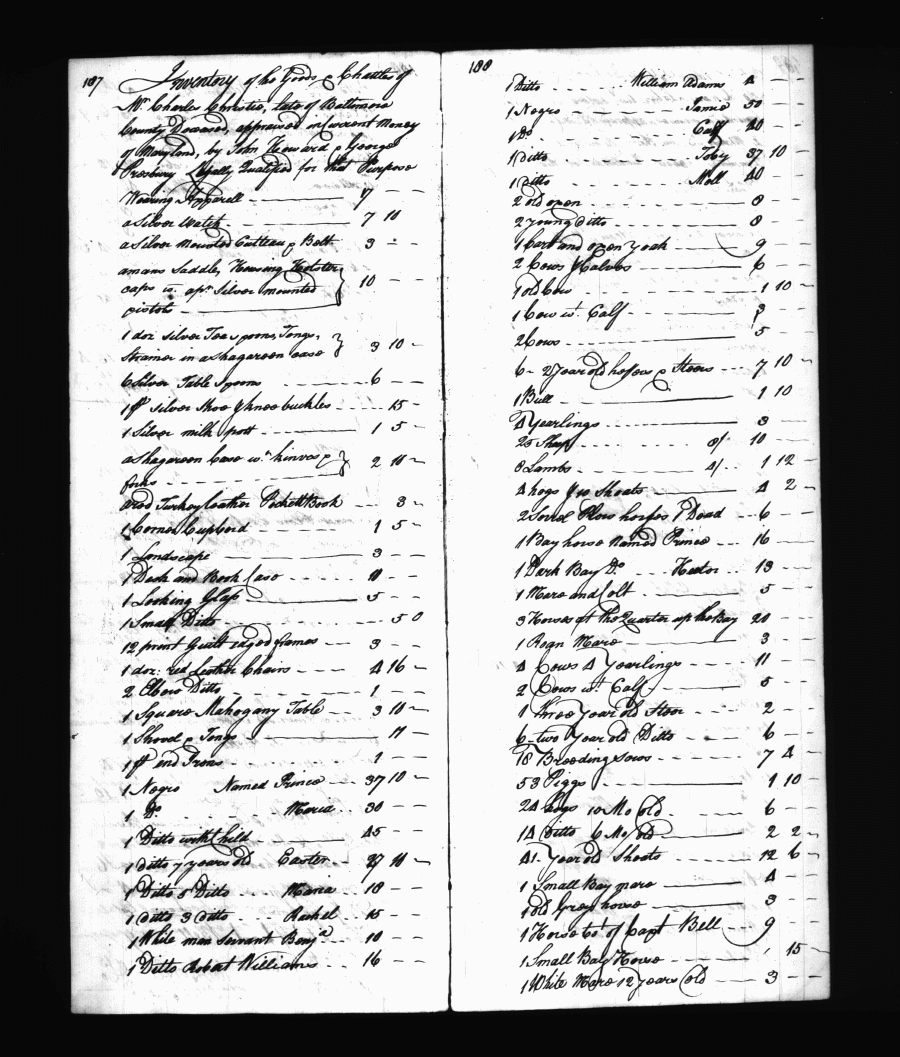 187
Inventory of the Goods & Chattles of
Mr. Charles Christie, late of Baltimore
County Deceased, appraised in Current Money
of Maryland, by John Howard & George
Presbury Legally Qualified for that Purpose
Wearing Apparell 7 - -
a Silver watch 7 10
a Silver Mounted Cutteau & Belt 3 - -
a mans Saddle, Housing Holster
caps wt. a pr. Silver mounted 10 - -
pistols
1 doz silver Tea spoons, Tongs,
Strainer in a Shagareen case 3 10 -
6 Silver Table Spoons 6 - -
1 pr silver Shoe & knee buckles 15 -
1 Silver milk pott 1 5 -
a Shagareen Case wt. knives & 2 10 -
forks
a red Turkey leather Pockett Book 3 -
1 Corner Cupbord 1 5 -
1 Landscape 3 - -
1 Desk and Book Case 10 - -
1 Looking Glass 5 - -
1 Small Ditto 5 0
12 print Guilt edged frames 3 - -
1 doz: red Leather Chairs 4 16 -
2 Elbow Ditto 1 - -
1 Square Mahogany Table 3 10 -
1 Shovel & Tongs -
1 pr end Irons 1 - -
1 Negro Named Prince 37 10 -
1 Do. Maria 30 - -
1 Ditto with Child 45 - -
1 ditto 7 years old Easter 27 10 -
1 Ditto 5 Ditto Maria 18 - -
1 ditto 3 ditto Rachel 15 - -
1 White man Servant Benja. 10 - -
1 Ditto Robert Williams 16 - -
188
1 Ditto William Adams 4 - -
1 Negro Jamie 50 - -
1 Do Cuff 40 - -
1 Ditto Toby 37 10 -
1 Ditto Moll 40 - -
2 old oxen 8 - -
2 young ditto 8 - -
1 Cart and oxen yoak 9 - -
2 Cows & Calves 6 - -
1 old Cow 1 10 -
1 Cow wt. Calf 3 - -
2 Cows 5 - -
6 - 2 year old heffers & Steers 7 10 -
1 Bull 1 10
4 Yearlings 3 - -
25 Sheep 8/ 10 - -
8 Lambs 4/ 1 12 -
4 hogs & 10 Shoats 4 2 -
2 Sorrel Plow horses 1 Dead 6 - -
1 Bay horse Named Prince 16 - -
1 Dark Bay Do. Hector 13 - -
1 Mare and Colt 5 - -
3 Horses at the Quarter up the Bay 20 - -
1 Roan Mare 3 - -
4 Cows 4 Yearlings 11 - -
2 Cows wt. Calf 5 - -
1 three year old Steer 2 - -
6 two Year old Ditto 6 - -
18 Breeding sows 7 4 -
53 Piggs 1 10 -
24 hogs 10 Mo old 6 - -
14 Ditto 6 Mo old 2 2 -
41 Year old Shoats 12 6 -
1 Small Bay mare 4 - -
1 old Gray horse 3 - -
1 Horse bot. of Capt Bell 9 - -
1 Small Bay Horse 1 15 -
1 White Mare 12 years old 3 - -